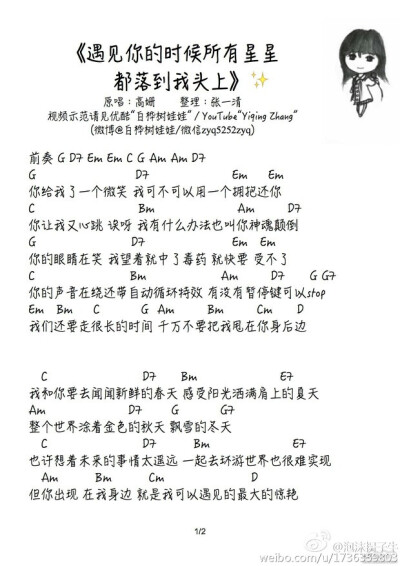 《遇见你的时候所有星星
都落到我头上》
原唱：高姗 整理：张一清
视频示范请见优酷“白桦树娃娃” / YouTube“Yiqing Zhang”
(微博@白桦树娃娃/微信zyq5252zyq)
前奏 G D7 Em Em C G Am Am D7
G D7 Em Em
你给我了一个微笑 我可不可以用一个拥抱还你
C Bm Am D7
你让我又心跳 诶呀 我有什么办法也叫你神魂颠倒
G D7 Em Em
你的眼睛在笑 我望着就中了毒药 就快要 受不了
C Bm Am D7 G G7
你的声音在绕还带自动循环特效 有没有暂停键可以stop
Em Bm C G Am Bm Cm D
我们还要走很长的时间 千万不要把我甩在你身后边
C D7 Bm E7
我和你要去闻闻新鲜的春天 感受阳光洒满肩上的夏天
Am D7 G G7
整个世界涂着金色的秋天 飘雪的冬天
C D7 Bm E7
也许想着未来的事情太遥远 一起去环游世界也很难实现
Am Cm D
但你出现 在我身边 就是我可以遇见的最大的惊艳
1/2
weibo.com/u/1736359803